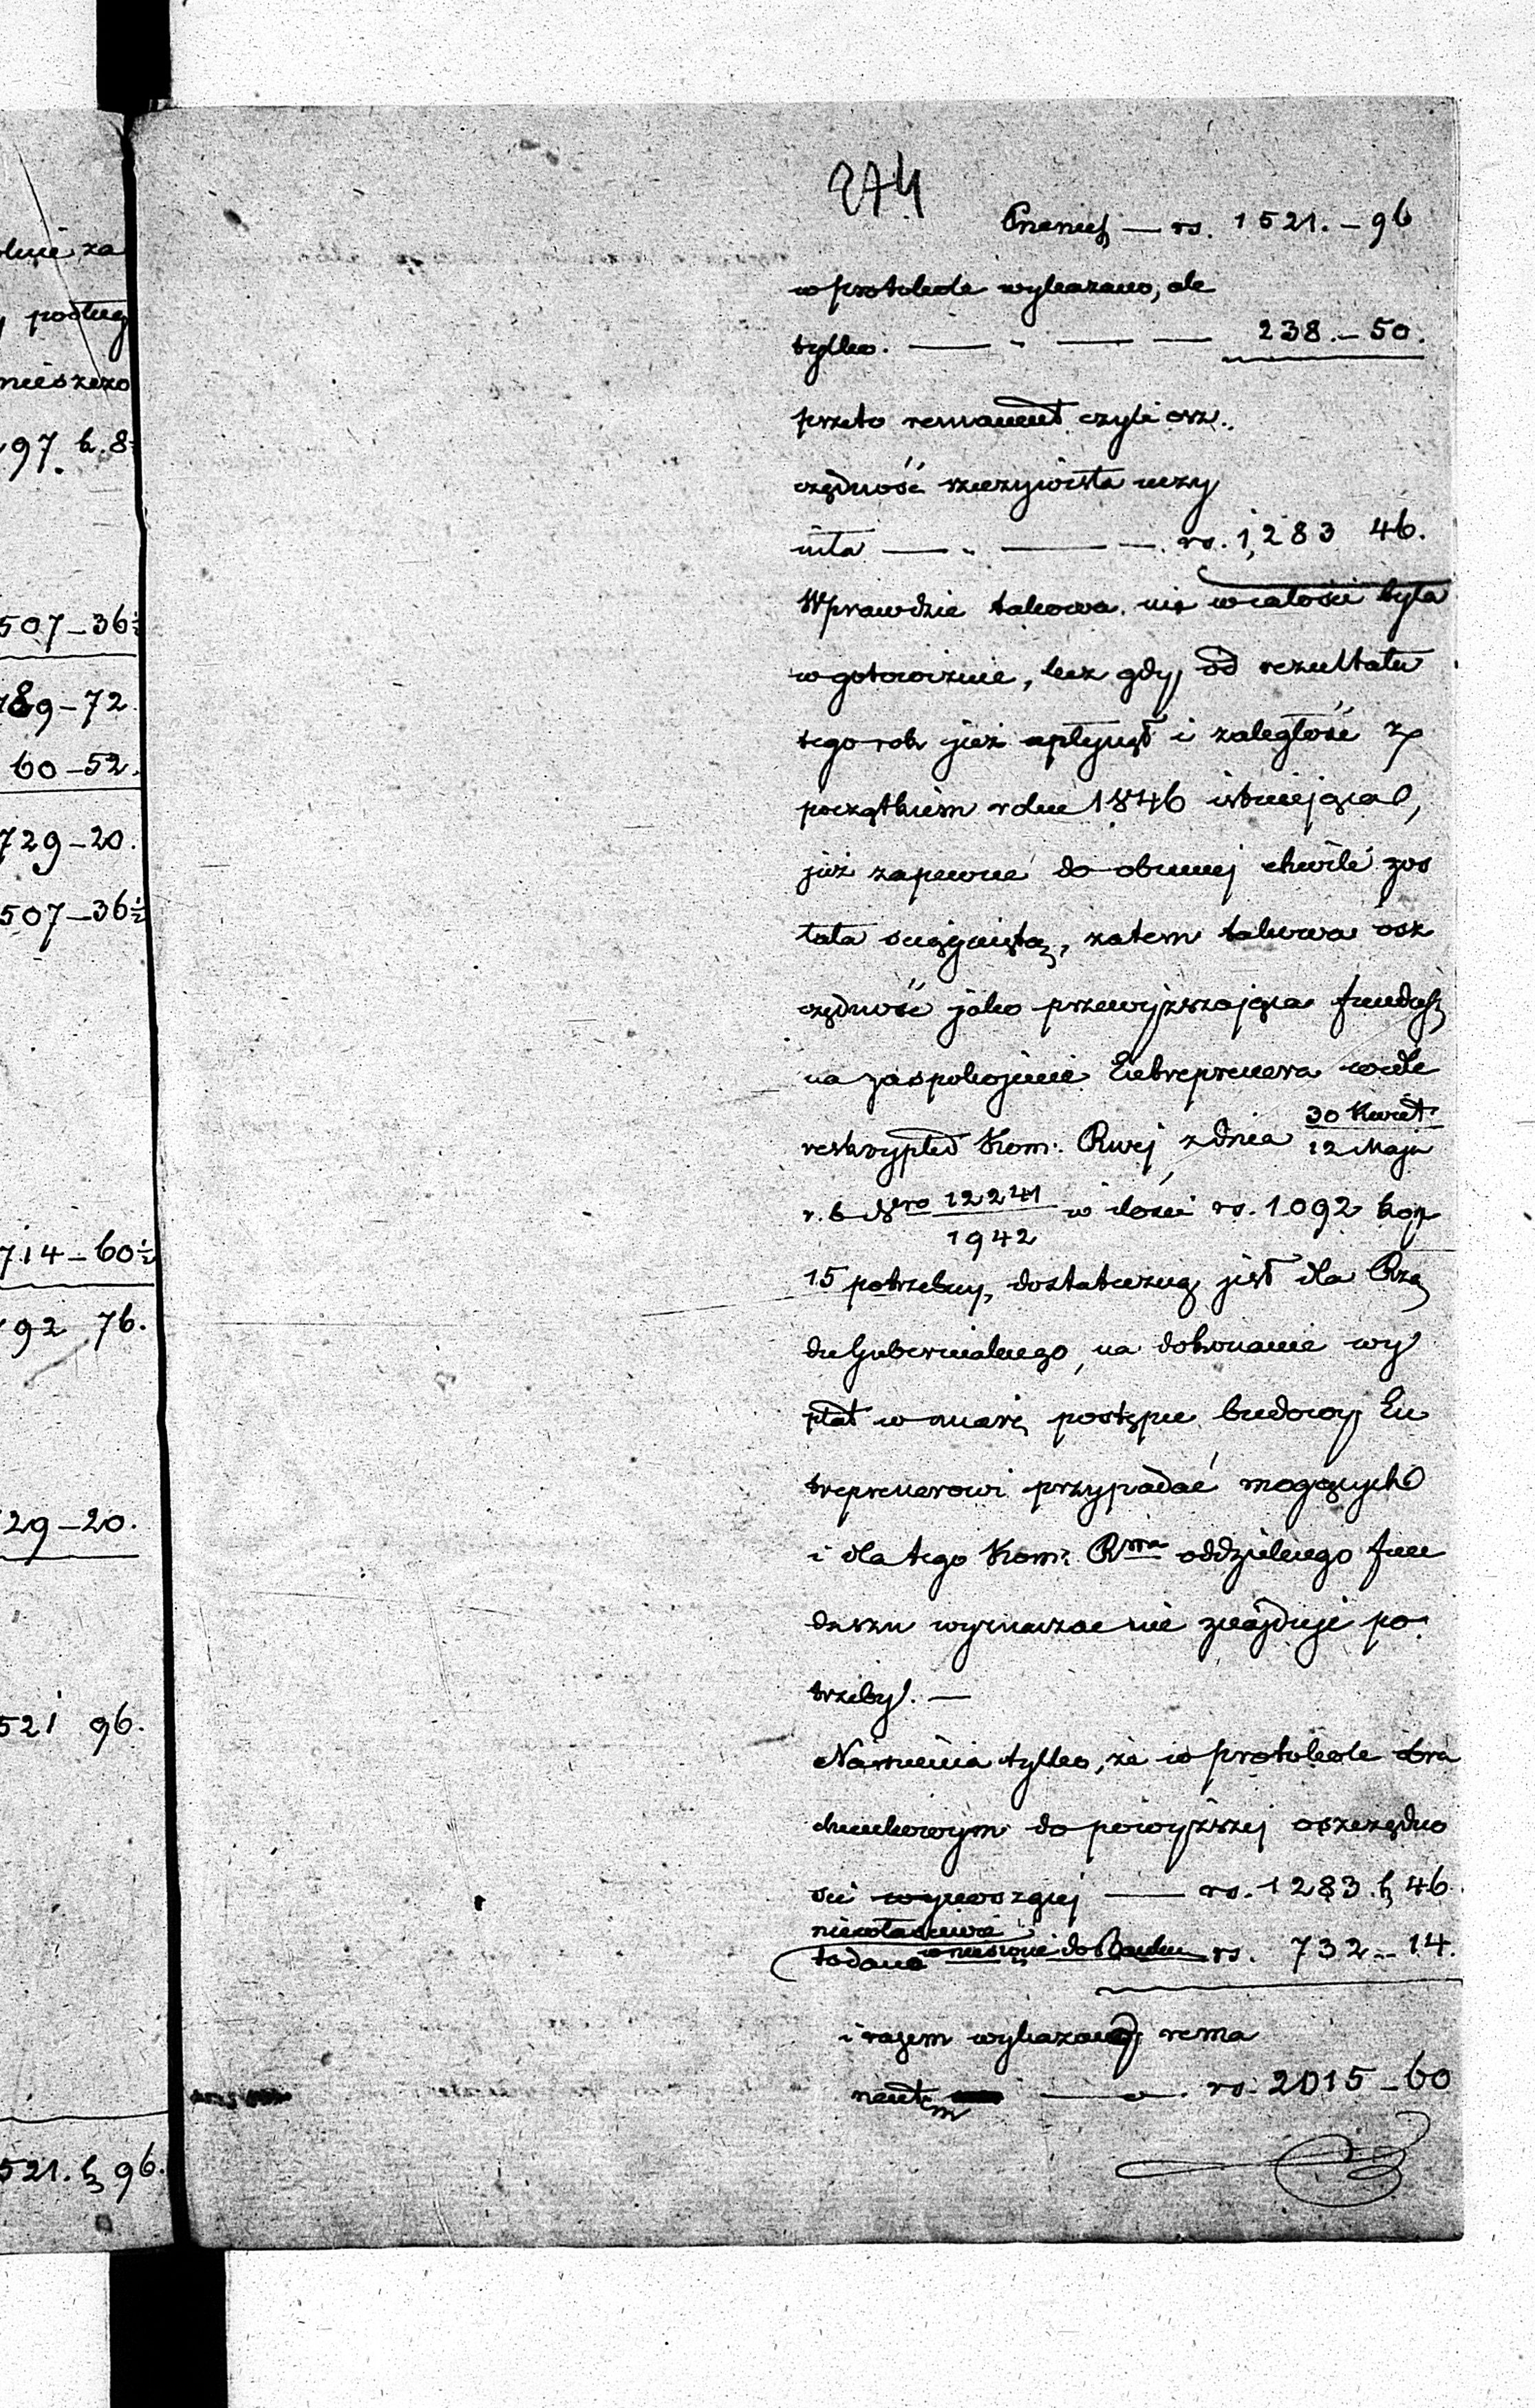 olnie za
podług
mieszczo
97. k. 8
507-36½
789-72.
60-52.
729-20.
507-36½
714-60½
92 76.
29-20.
521 96.
521. k 96.
274
Prenies — rs. 1521.-96
w protokole wykazano, ale
tylko. — - — — 238.-50.
przeto remanent czyli osz..
czędność rzeczywista uczy
niła — - — —. rs. 1,283 46.
Wprawdzie takowa nie w całości była
w gotowiznie, lecz gdy od rezultatu
tego rok już upłynął i zaległość z
początkiem roku 1846 istniejąca,
już zapewne do obecnej chwili zos
tała ściągniętą, zatem takowa osz
czędność jako przewyższająca fundusz
na zaspokojenie Entreprenera wedle
reskryptu Kom: Rwej z dnia 30 Kwiet/12 Maja
r. b Nro 12241/1942 w ilości rs. 1092 kop
15 potrzebny, dostateczną jest dla Rzą
du Gubernialnego, na dokonanie wy
płat w miarę postępu budowy En
treprenerowi przypadać mogących
i dla tego Kom: Rwa oddzielnego fun
duszu wyznaczać nie znajduje po
trzeby. —
Namienia tylko, że w protokole obra
chunkowym do powyższej oszczędno
ści wynoszącej — rs. 1283. k 46.
niewłaściwie
dodano wniesione do Banku rs. 732.-14.
i razem wykazano rema
nentem — - —. rs. 2015-60